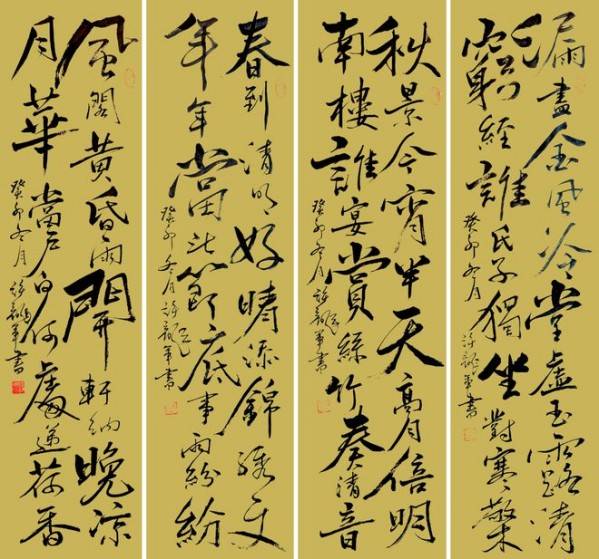 漏盡金風冷堂虛玉露清
窮經誰氏子獨坐對寒檠
癸卯冬月許龍軍書
秋景今宵半天高月倍明
南樓誰宴賞絲竹奏清音
癸卯冬月許龍軍書
春到清明好晴添錦繡文
年年當此節底事雨紛紛
癸卯冬月許龍軍書
風閣黃昏雨開軒納晚涼
月華當戶白何處遞荷香
癸卯冬月許龍軍書